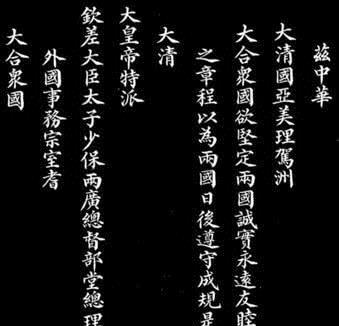 茲中華
大清國亞美理駕洲
大合衆國欲堅定兩國誠實永遠友睦
之章程以為兩國日後遵守成規是
大清
大皇帝特派
欽差大臣太子少保兩廣總督部堂總理
外國事務宗室耆
大合衆國